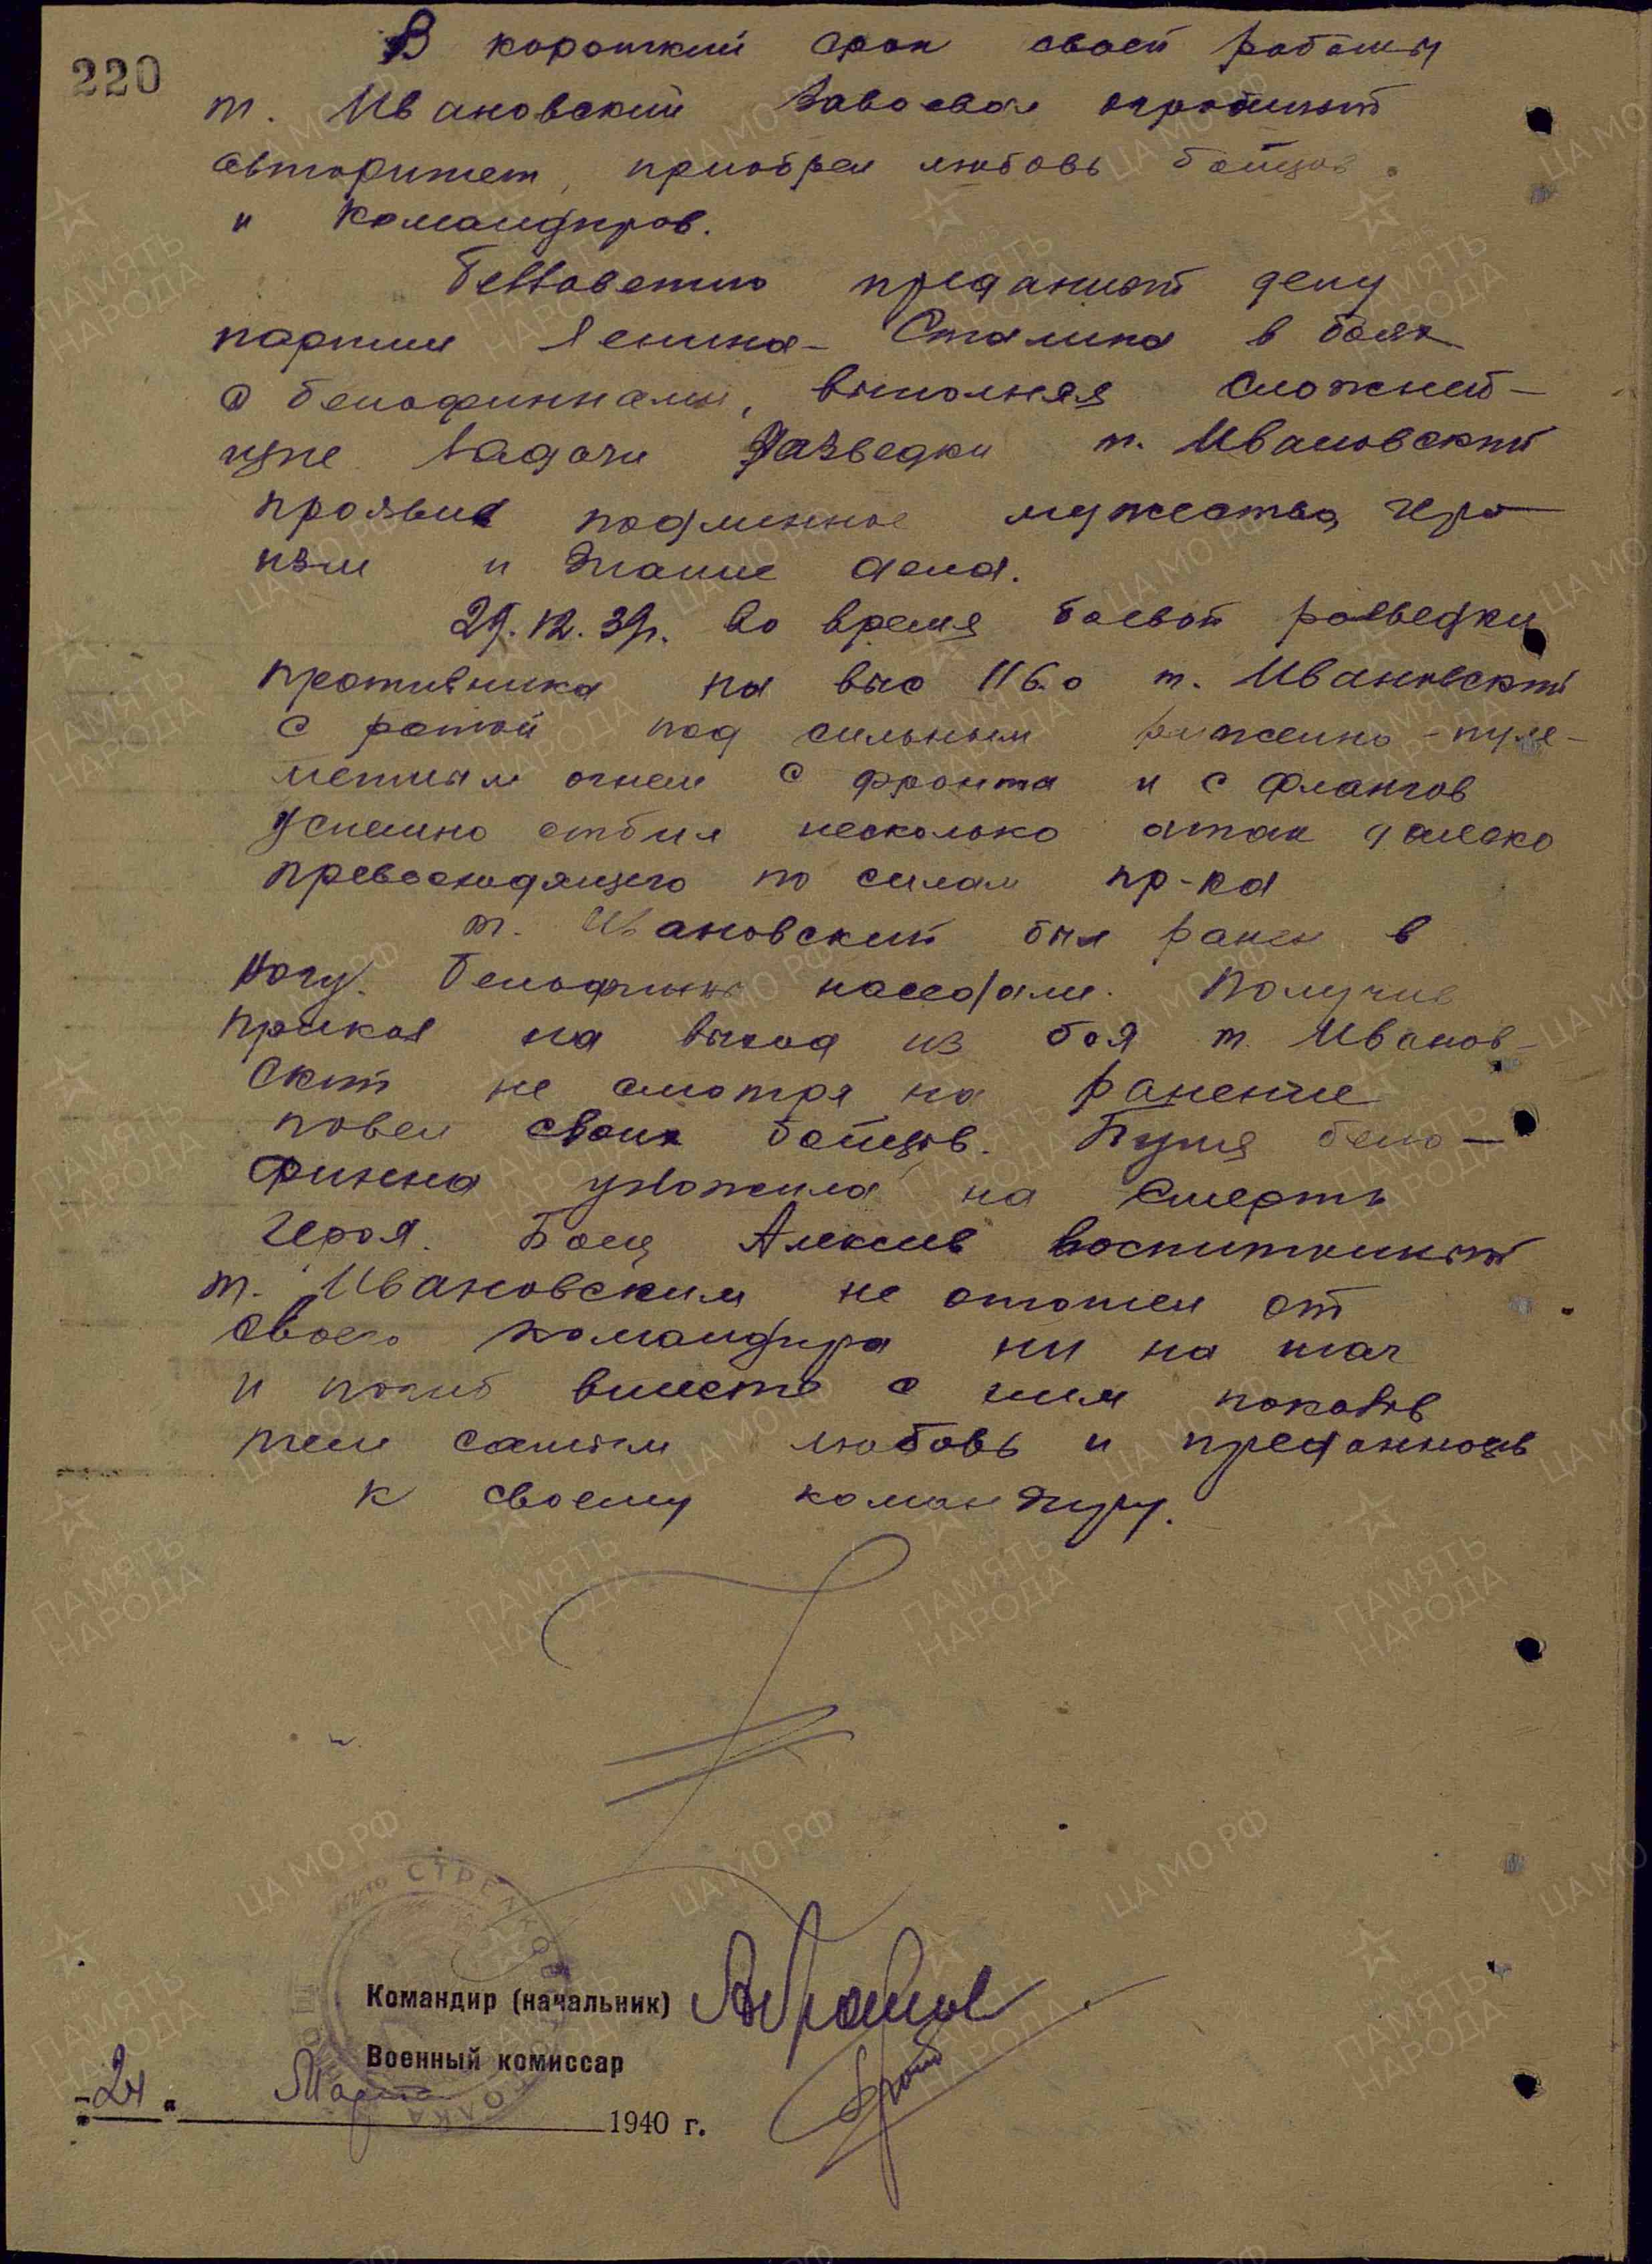 220
В короткий срок своей работы
т. Ивановский завоевал огромный
авторитет, приобрел любовь бойцов
и командиров.
Беззаветно преданный делу
партии Ленина-Сталина в боях
с белофиннами, выполняя сложней-
шие задачи разведки т. Ивановский
проявил подлинное мужество, геро-
изм и знание дела.
29.12.39г. во время боевой разведки
противника на выс 116.0 т. Ивановский
с ротой под сильным ружейно-пуле-
метным огнем с фронта и с флангов
успешно отбил несколько атак далеко
превосходящего по силам пр-ка
т. Ивановский был ранен в
ногу. Белофинны наседали. Получив
приказ на выход из боя т. Иванов-
ский не смотря на ранение
повел своих бойцов. Пуля бело-
финна уложила на смерть
героя. Боец Алексеев воспитанный
т. Ивановским не отошел от
своего командира ни на шаг
и погиб вместе с ним показав
тем самым любовь и преданность
к своему командиру.
СТРЕЛКОВ
ПОЛКА
Командир (начальник)
Военный комиссар
"24" Марта 1940 г.
ЦА МО РФ
ПАМЯТЬ НАРОДА